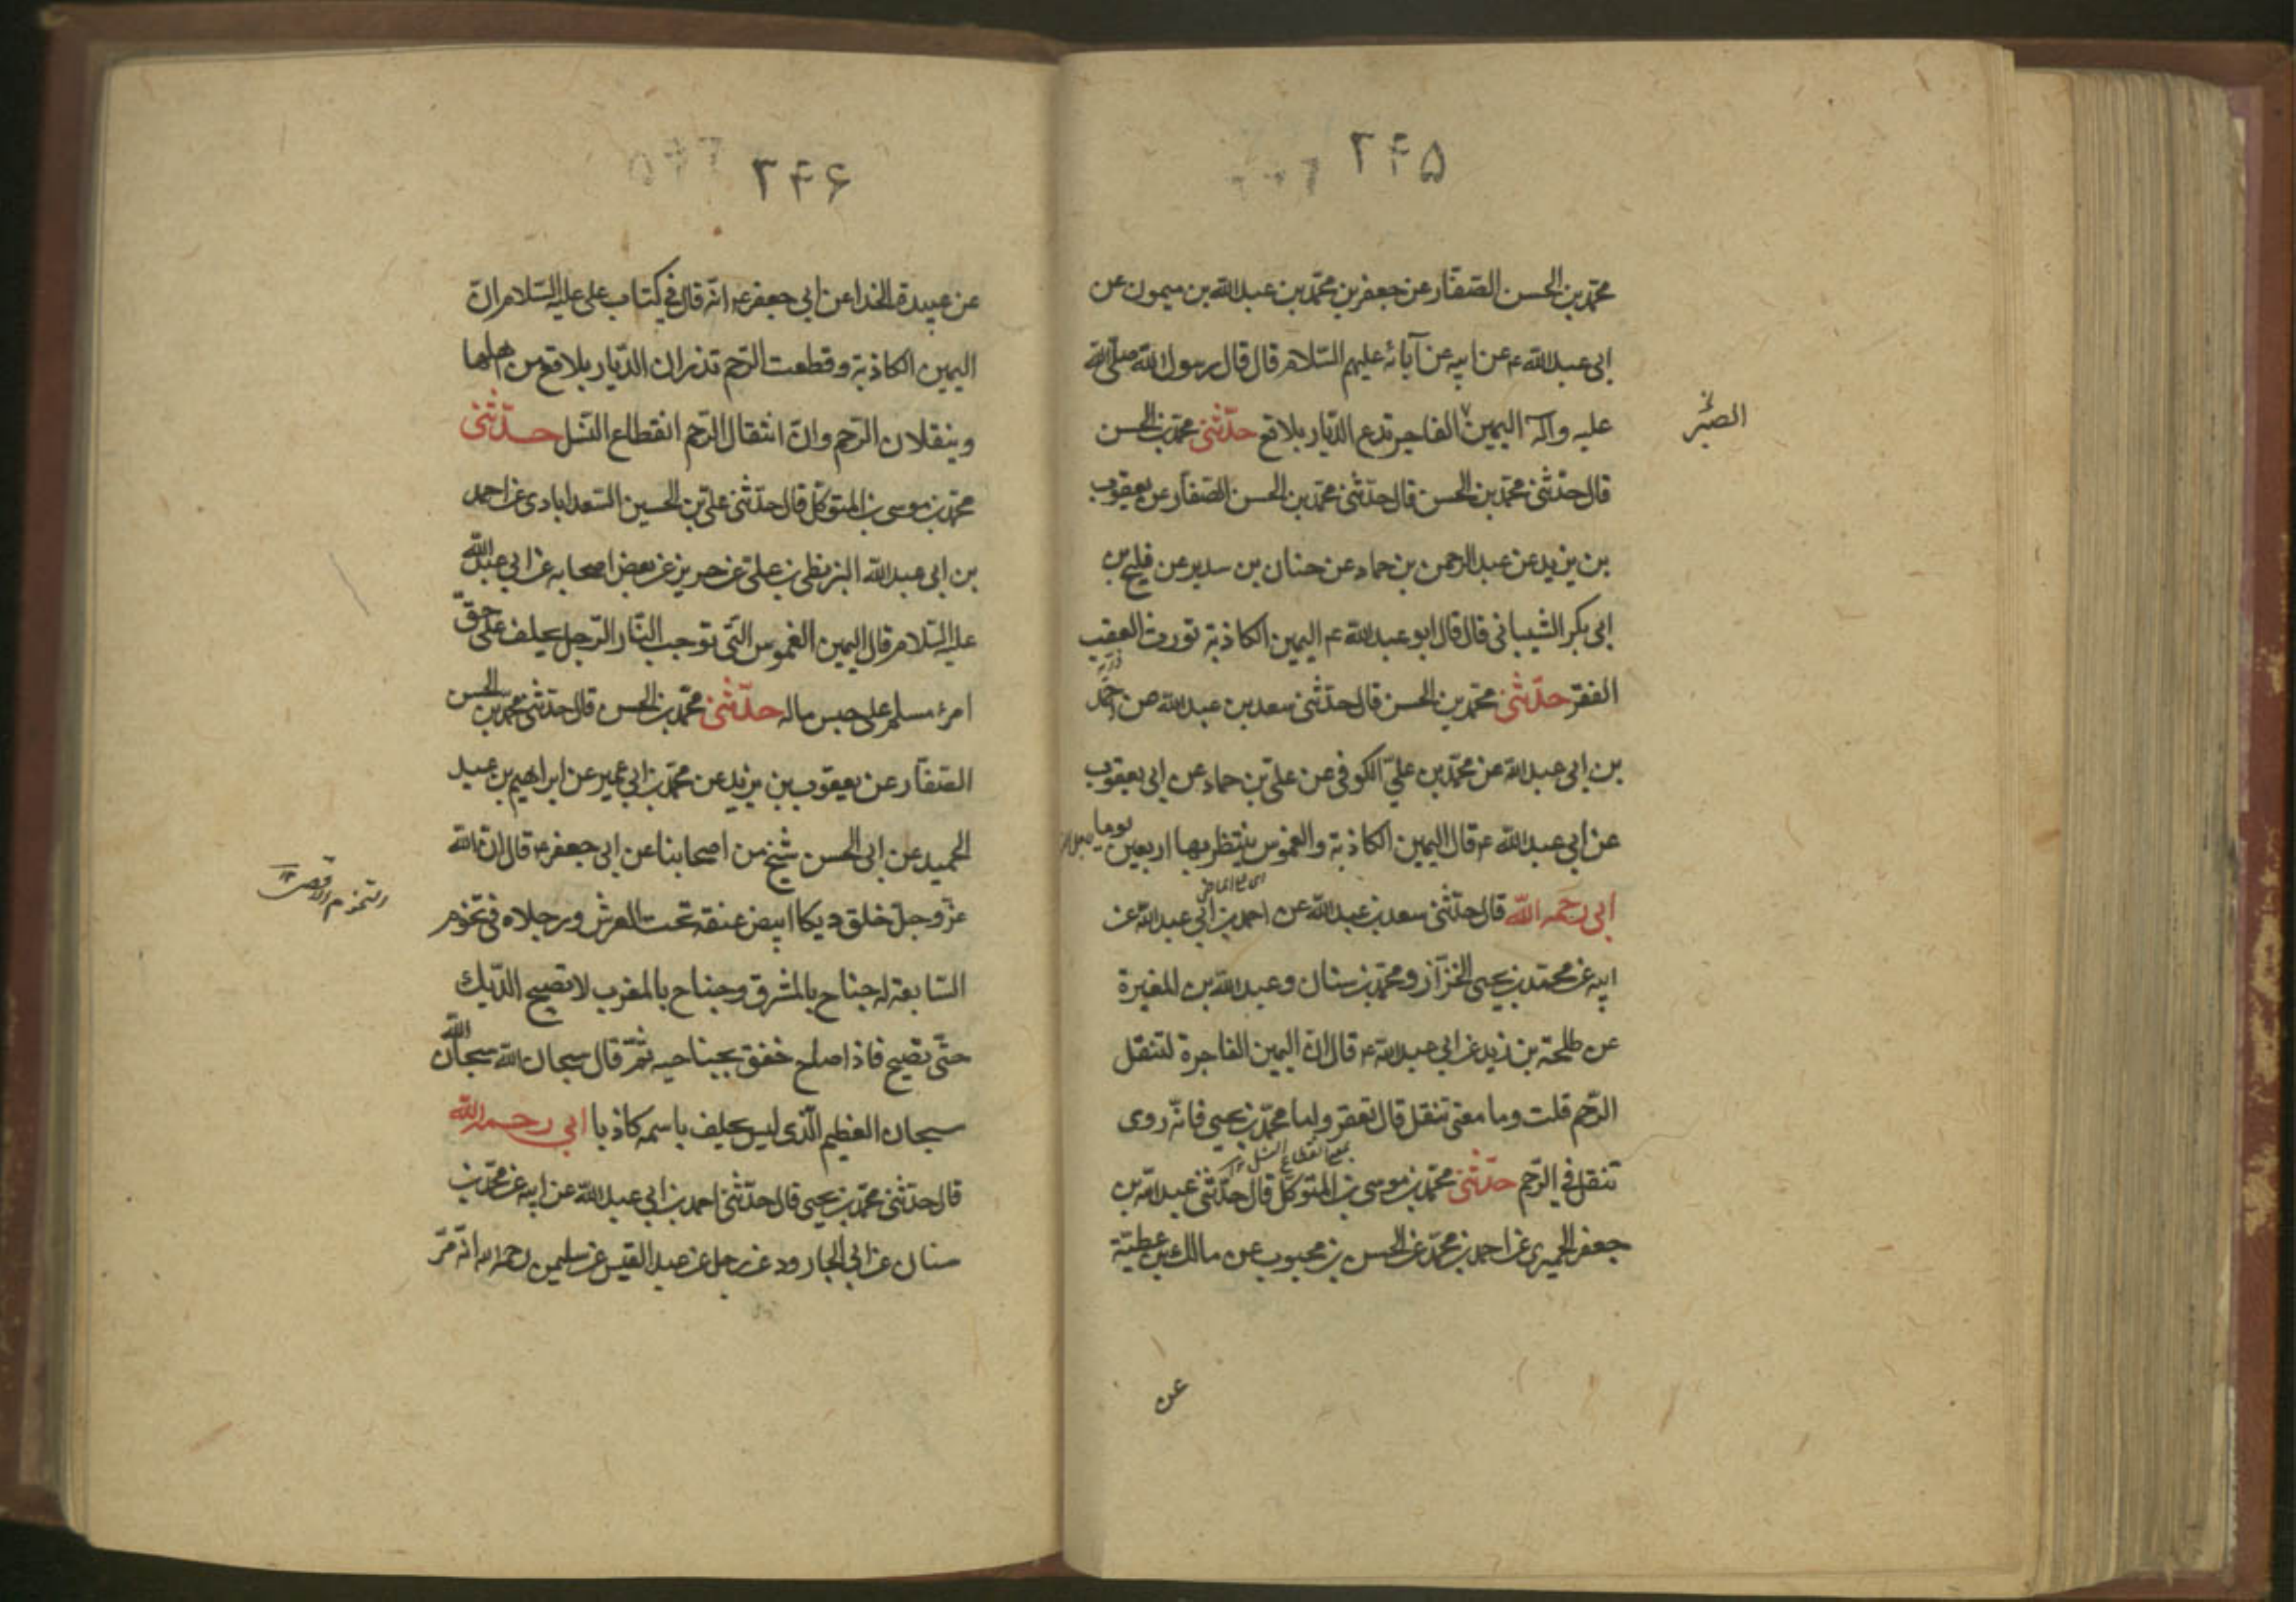 ۲۴۵
محمّد بن الحسن الصّفّار عن جعفر بن محمّد بن عبدالله بن ميمون عن
ابى عبدالله ع عن ابيه عن آبائه عليهم السّلام قال قال رسول الله صلّى الله
عليه وآله اليمين الفاجر تدع الدّيار بلاقع حدّثنى محمّد بن الحسن
الصبر
قال حدّثنى محمّد بن الحسن قال حدّثنى محمّد بن الحسن الصّفّار عن يعقوب
بن يزيد عن عبد الرحمن بن حماد عن حنان بن سدير عن فليح بن
ابى بكر الشيبانى قال قال ابو عبدالله ع اليمين الكاذبة تورث العقب
الفقر حدّثنى محمّد بن الحسن قال حدّثنى سعد بن عبدالله عن احمد
بن ابى عبدالله عن محمّد بن علىّ الكوفى عن علىّ بن حماد عن ابى يعقوب
عن ابى عبدالله ع قال اليمين الكاذبة والغموس ينتظر بها اربعين يوما
ابى رحمه الله قال حدّثنى سعد بن عبدالله عن احمد بن ابى عبدالله عن
ابيه عن محمّد بن يحيى الخزّاز ومحمّد بن سنان وعبدالله بن المغيرة
عن طلحة بن زيد عن ابى عبدالله ع قال انّ اليمين الفاجرة لتنقل
الرّحم قلت وما معنى تنقل قال تعقر واما محمّد بن يحيى فانّه روى
تنقل فى الرّحم حدّثنى محمّد بن موسى بن المتوكّل قال حدّثنى عبدالله بن
جعفر الحميرى عن احمد بن محمّد عن الحسن بن محبوب عن مالك بن عطيّة
عن
۲۴۶
عن عبيدة الخدا عن ابى جعفر ع انّه قال فى كتاب على عليه السّلام انّ
اليمين الكاذبة وقطعت الرّحم تذران الدّيار بلاقع من اهلها
وينقلان الرّحم وانّ انتقال الرّحم انقطاع النّسل حدّثنى
محمّد بن موسى بن المتوكّل قال حدّثنى علىّ بن الحسين السّعدابادى عن احمد
بن ابى عبدالله البزنطى بن علىّ عن حريز عن بعض اصحابه عن ابى عبدالله
عليه السّلام قال اليمين الغموس الّتى توجب النّار الرّجل يحلف على حقّ
امرء مسلم على حبس ماله حدّثنى محمّد بن الحسن قال حدّثنى محمّد بن الحسن
الصّفّار عن يعقوب بن يزيد عن محمّد بن ابى عمير عن ابراهيم بن عبد
الحميد عن ابى الحسن شيخ من اصحابنا عن ابى جعفر ع قال انّ الله
عزّوجلّ خلق ديكا ابيض عنقه تحت العرش ورجلاه فى تخوم
السّابعة له جناح بالمشرق وجناح بالمغرب لا تصيح الدّيك
حتّى تصيح فاذا صاح خفق بجناحيه ثمّ قال سبحان الله سبحان الله
سبحان العظيم الّذى ليس يحلف باسمه كاذبا ابى رحمه الله
قال حدّثنى محمّد بن يحيى قال حدّثنى احمد بن ابى عبدالله عن ابيه عن محمّد بن
سنان عن ابى الجارود عن رجل عن عبد القيس عن سليمن رحمه الله انّه مرّ